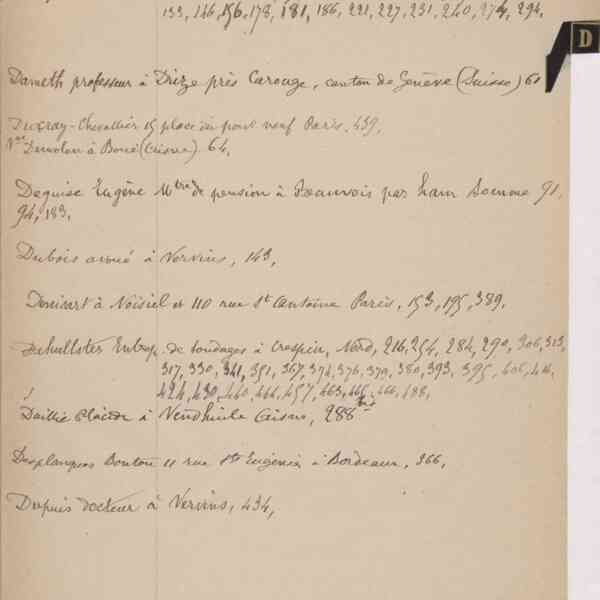 133, 146, 156, 178, 181, 186, 221, 227, 231, 240, 274, 294,
D
Dameth professeur à Drize près Carouge, canton de Genève (Suisse) 61
Ducray-Chevallier 15 place du pont neuf Paris, 439,
Vve Demolon à Boué (Aisne). 64,
Deguise Eugène Mtre de pension à Beauvois par ham Somme 91,
94, 183,
Dubois avoué à Vervins, 143,
Donisart à Noisiel et 110 rue St Antoine Paris, 153, 195, 389,
de sondages à Crespin, Nord, 216, 254, 284, 290, 306, 313,
317, 330, 341, 351, 367, 374, 376, 379, 380, 393, 395, 406, 414,
424, 430, 440, 444, 457, 463, 465, 466, 488,
à Vendhuile Aisne, 288 bis
Desplanques Bouton 11 rue Ste Eugénie à Bordeaux, 366,
Dupuis docteur à Vervins, 434,